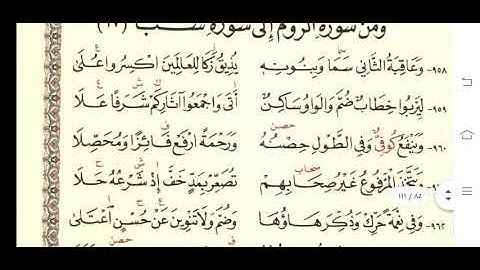 ومن سورة الروم إلى سورة سبأ (١٦)
٩٥٨- وَعَاقِبَةُ الثَّانِي سَمَا وَبِنُونِهِ يُذِيقَ زَكَا لِلْعَالَمِينَ اكْسِرُوا عُلَى
٩٥٩- لِيَرْبُوا خِطَابٌ ضُمَّ وَالْوَاوُ سَاكِنٌ أَتَى وَاجْمَعُوا آثَارِ كَمْ شَرَفًا عَلَا
٩٦٠- وَيَنْفَعُ كُوفِيٌّ وَفِي الطَّوْلِ حِصْنُهُ وَرَحْمَةً ارْفَعْ فَائِزًا وَمُحَصِّلَا
حصن
وَيَتَّخِذَ الْمَرْفُوعُ غَيْرُ صِحَابِهِمْ تُصَعِّرْ بِمَدٍّ خَفَّ إِذْ شَرْعُهُ حَلَا
صحاب
١١١ / ٨٢
٩٦٢- وَفِي نِعْمَةً حَرِّكْ وَذُكِّرَ هَاؤُهَا وَضُمَّ وَلَا تَنْوِينَ عَنْ حُسْنٍ اعْتَلَى
حصن